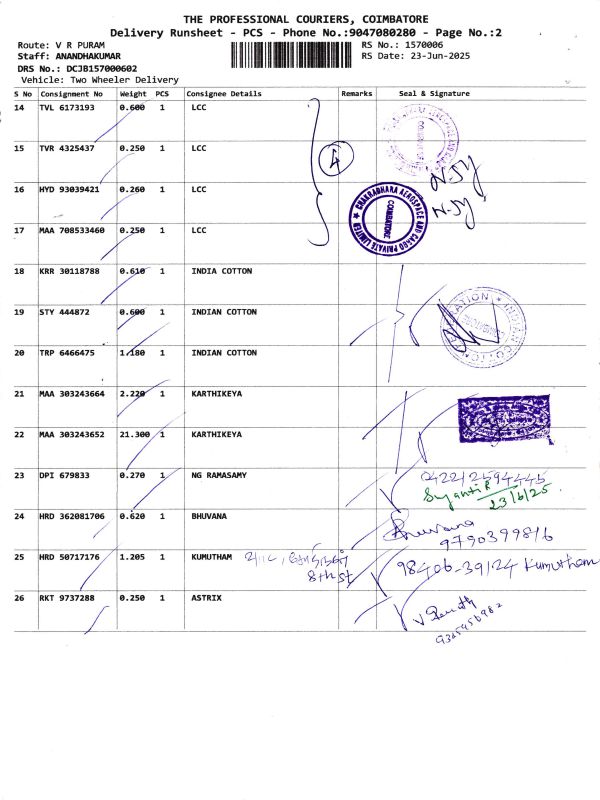 THE PROFESSIONAL COURIERS, COIMBATORE
Delivery Runsheet - PCS - Phone No.:9047080280 - Page No.:2
Route: V R PURAM
RS No.: 1570006
Staff: ANANDHAKUMAR
RS Date: 23-Jun-2025
DRS No.: DCJB157000602
Vehicle: Two Wheeler Delivery
S No Consignment No Weight PCS Consignee Details Remarks Seal & Signature
14 TVL 6173193 0.600 1 LCC
15 TVR 4325437 0.250 1 LCC
4
16 HYD 93039421 0.260 1 LCC
CHAKRADHARA AEROSPACE AND CARGO PRIVATE LIMITED
COIMBATORE
17 MAA 708533460 0.250 1 LCC
18 KRR 30118788 0.610 1 INDIA COTTON
19 STY 444872 0.600 1 INDIAN COTTON
INDIAN COTTON
20 TRP 6466475 1.180 1 INDIAN COTTON
21 MAA 303243664 2.220 1 KARTHIKEYA
22 MAA 303243652 21.300 1 KARTHIKEYA
23 DPI 679833 0.270 1 NG RAMASAMY
0422/2594445
23/6/25.
24 HRD 362081706 0.620 1 BHUVANA
Bhuvana
9790399816
25 HRD 50717176 1.205 1 KUMUTHAM
8th st
98406-39124 Kumutham
26 RKT 9737288 0.250 1 ASTRIX